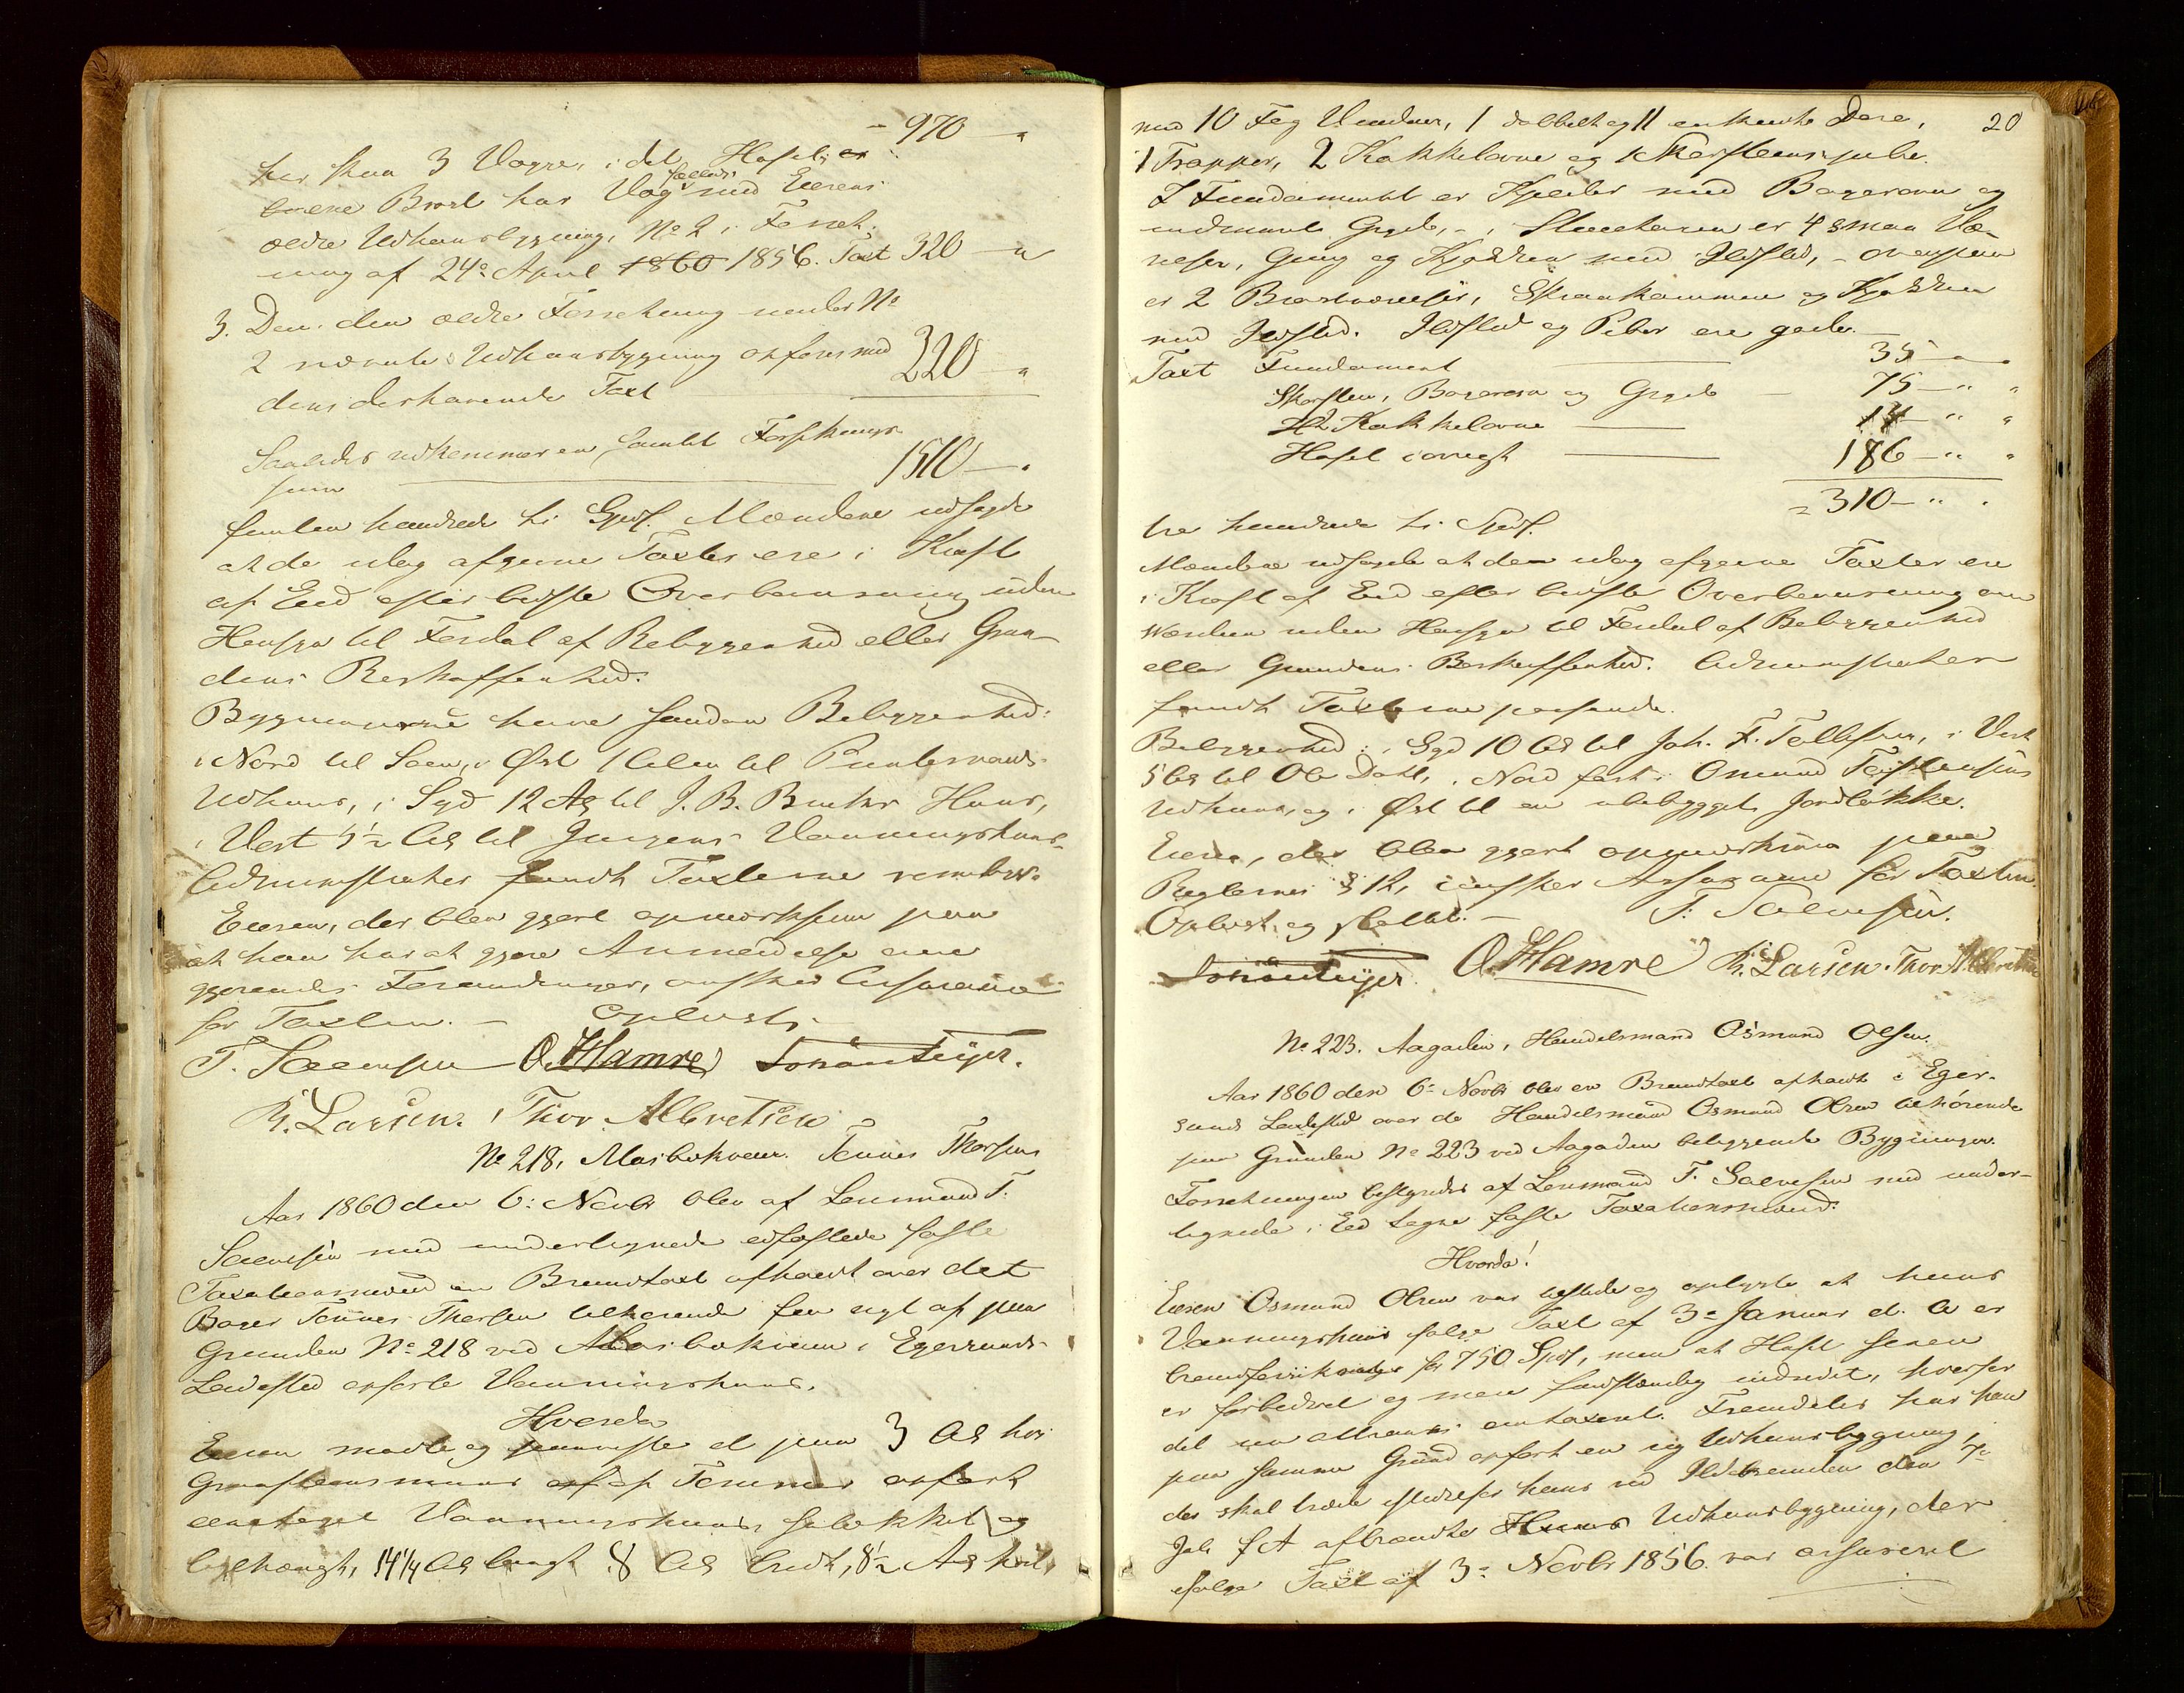 970 – "
har kun 3 Vægge, i det Huset; er
øvre Bræd har Væg fælleds med Eierens
ældre Udhuusbygning, No 2 i Forret-
ning af 24de April 1860 1856. Taxt 320 – "
3. Den den ældre Forretning under No
2 nævnte Udhuusbygning opføres med
dens derhavende Taxt 220 – "
Saaledes udkommer en samlet Forsikrings
sum 1510 – "
femten hundrede ti Spd. Mændene udsagde
at de idag afgivne Taxter ere i Kraft
af Eed efter bedste Overbeviisning uden
Hensyn til Fordel af Bebyggenhed eller Grun-
dens Beskaffenhed.
Bygningerne have saadan Beliggenhed:
i Nord til Søen, i Øst 1 Alen til
Udhuus, i Syd 12 Al til J. B. Huus,
i Vest 5½ Al til Jørgens Vaaningshuus.
Administrator fandt Taxterne
Eieren, der blev gjort opmærksom paa
at han har at gjøre Anmeldelse om
gjørendes Forandringer, ønsker Assurance
for Taxten. – Oplæst.
T. Salvesen O. Hamre
R. Larsen. Thor Albretsen
No 218, Mosbekveien. Tønnes Thorsens
Aar 1860 den 6: Novbr blev af Lensmand T.
Salvesen med undertegnede edfæstede faste
Taxationsmænd en Brandtaxt afholdt over det
Bager Tønnes Thorsen tilhørende fra nyt af paa
Grunden No 218 ved Mosbekveien i Egersunds
Ladested opførte Vaaningshuus.
Hvorda
Eieren mødte og paaviste et paa 3 Al høi
Graasteensmuur af Tømmer opført
eenetages Vaaningshuus, og
teglhængt, 14¼ Al langt 8 Al bredt, 8½ Al høit,
20
med 10 Fag Vinduer, 1 dobbelt og 11 enkelte Døre,
1 Trapper, 2 Kakkelovne og 1 Skorsteenspibe.
I Fundamentet er Kjelder med Bagerovn og
indmuret Gryde, – i Stueetagen er 4 smaa Væ-
relser, Gang og Kjøkken med Ildsted, – ovenpaa
er 2 Brædværelser, Skraakammer og Kjøkken
med Ildsted. Ildsted og Piber ere gode. –
Taxt Fundament 35 – "
Skorsteen, Bagerovn og Gryde – 75 – " "
2 Kakkelovne 14 – " "
Huset iøvrigt 186 – " "
= 310 – " "
tre hundrede ti Spd.
Mændene udsagde at den idag afgivne Taxter ere
i Kraft af Eed efter bedste Overbeviisning om
Værdien uden Hensyn til Fordel af Bebyggenhed
eller Grundens Beskaffenhed. Administrator
fandt Taxterne passende.
Beliggenhed: i Syd 10 Al til Joh. F. Tollefsen, i Vest
5 Al til Ole Dahl, i Nord fast i Omund
Udhuus, og i Øst til en ubebygget Jordløkke.
Eieren, der blev gjort opmærksom paa
Reglernes § 12, ønsker Assurance for Taxten.
Oplæst, og sluttet. – T. Salvesen.
O. Hamre R. Larsen. Thor Albretsen
No 223. Aagaden, Handelsmand Osmund Olsen.
Aar 1860 den 6: Novbr blev en Brandtaxt afholdt i Eger-
sunds Ladested over de Handelsmand Osmund Olsen tilhørende
paa Grunden No 223 ved Aagaden beliggende Bygninger.
Forretningen bestyredes af Lensmand T. Salvesen med under-
tegnede i Eed tagne faste Taxationsmænd.
Hvorda!
Eieren Osmund Olsen var tilstede og oplyste at hans
Vaaningshuus ifølge Taxt af 3de Januar d. A er
brandforsikret for 750 Spd, men at Huset senere
er forbedret og mere fuldstændig indredet, hvorfor
det nu attraaes omtaxeret. Fremdeles har han
paa samme Grund opført en ny Udhuusbygning,
der skal træde istedetfor hans ved Ildebranden den 7de
Juli f A afbrændte Huus Udhuusbygning, der
ifølge Taxt af 3de Novbr 1856 var assureret